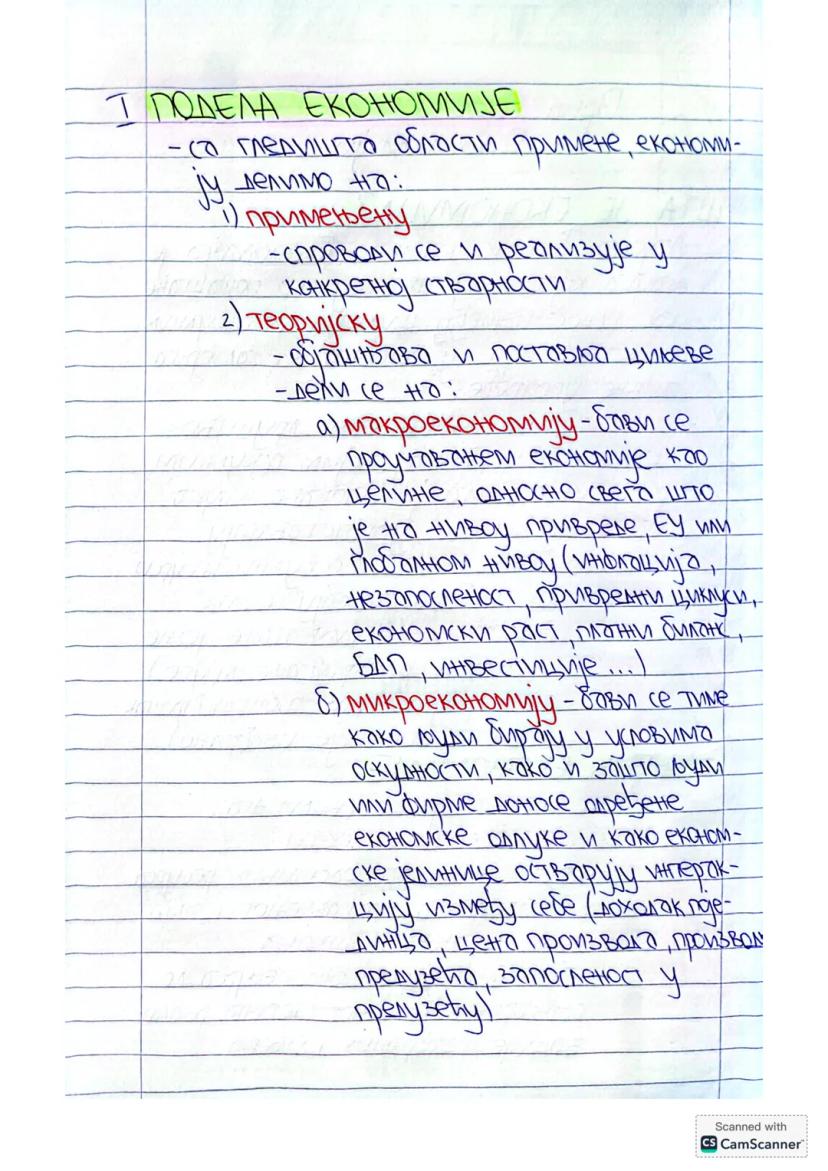 I ПОДЕЛА ЕКОНОМИЈЕ
- са гледишта области примене, економи-
ју делимо на:
1) примењену
- спроводи се и реализује у
конкретној стварности
2) теоријску
- објашњава и поставља циљеве
- дели се на:
а) макроекономију - бави се
проучавањем економије као
целине, односно свега што
је на нивоу привреде, ЕУ или
глобалном нивоу (инфлација,
незапосленост, привредни циклуси,
економски раст, платни биланс,
БДП, инвестиције ...)
б) микроекономију - бави се тиме
како људи бирају у условима
оскудности, како и зашто људи
или фирме доносе одређене
економске одлуке и како економ-
ске јединице остварују интерак-
цију између себе (доходак поје-
динца, цена производа,
предузећа, запосленост у
предузећу)
Scanned with
CS CamScanner